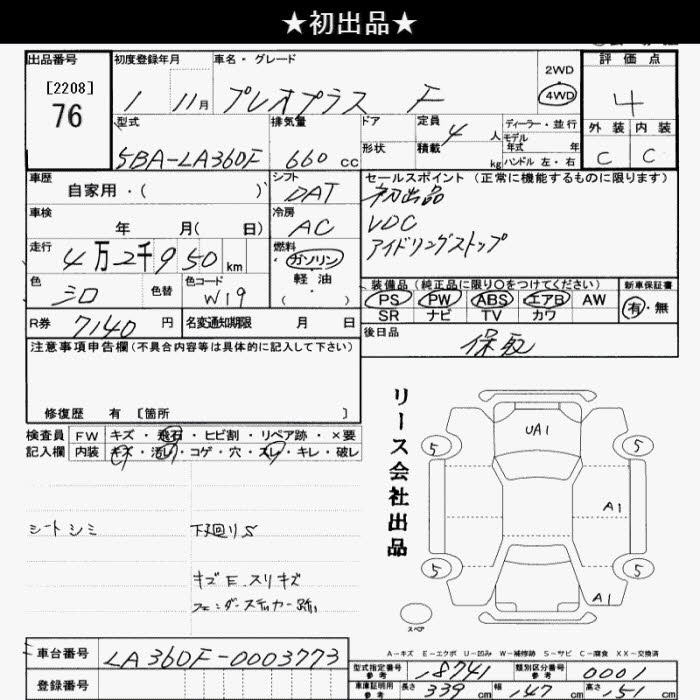 ★初出品★
出品番号 初度登録年月 車名・グレード 2WD 評価点
[2208] 76 1 11月 プレオプラス F 4WD 4
型式 排気量 ドア 定員 4人 ディーラー・並行 外装 内装
モデル年式 年
5BA-LA360F 660cc 形状 積載 kg ハンドル 左・右 C C
車歴 シフト セールスポイント (正常に機能するものに限ります)
自家用・( ) DAT 初出品
車検 冷房 VDC
年 月( 日) AC アイドリングストップ
走行 燃料
4万2千950km ガソリン
軽油
( )
色 色替 色コード 装備品 (純正品に限り○をつけてください) 新車保証書
シロ W19 PS PW ABS エアB AW 有・無
SR ナビ TV カワ
R券 7140円 名変通知期限 月 日 後日品
保取
注意事項申告欄(不具合内容等は具体的に記入して下さい)
修復歴 有 [箇所 ]
リース会社出品
検査員 FW キズ・飛石・ヒビ割・リペア跡・×要
記入欄 内装 キズ・汚レ・コゲ・穴・スレ・キレ・破レ
UA1
5 5
A1
5 5
A1
スペア
シートシミ 下廻りS
キズE スリキズ
フェンダーステッカー跡
A-キズ E-エクボ U-凹み W-補修跡 S-サビ C-腐食 XX-交換済
車台番号 LA360F-0003773
登録番号
型式指定番号 参考 18741 類別区分番号 参考 0001
車庫証明用 参考 長さ 339cm 幅 147cm 高さ 151cm